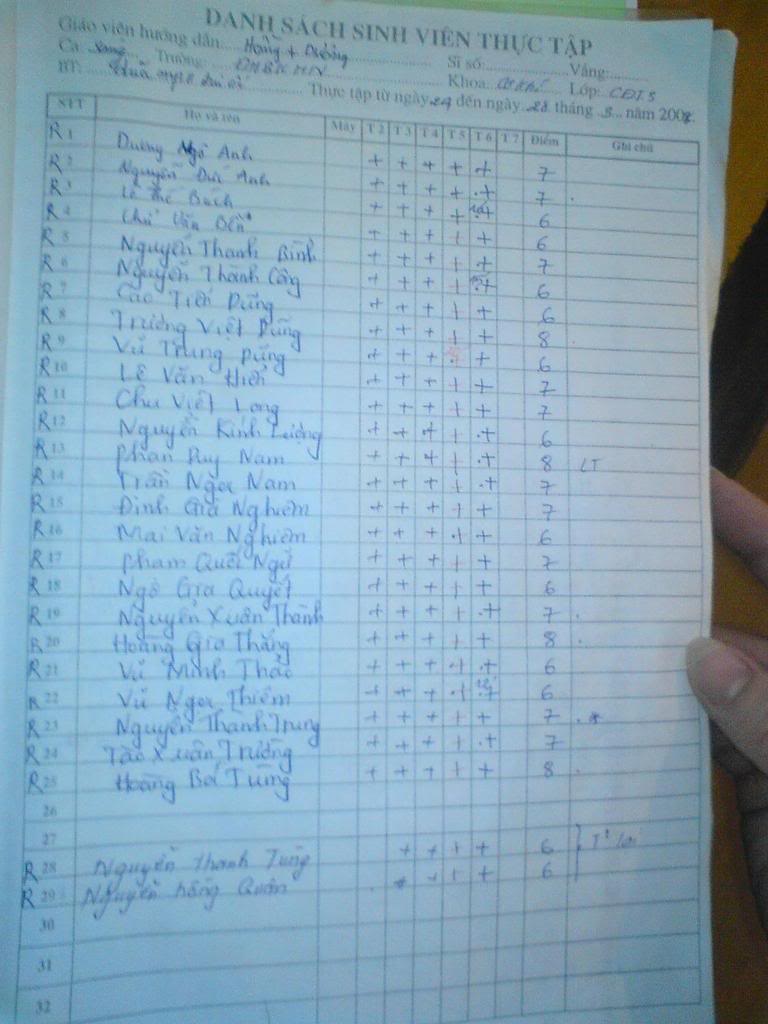 DANH SÁCH SINH VIÊN THỰC TẬP
Giáo viên hướng dẫn: Hoàng + Dưỡng
Ca: Sáng Trường: ĐHBK HN Sĩ số: Vắng:
BT: Khoa: Cơ khí Lớp: CĐT5
Thực tập từ ngày 24 đến ngày 28 tháng 3 năm 2008.
STT Họ và tên Máy T 2 T 3 T 4 T 5 T 6 T 7 Điểm Ghi chú
R 1 Dương Ngô Anh + + + + + 7
R 2 Nguyễn Đức Anh + + + + + 7
R 3 Lê Thế Bách + + + + + 6
R 4 Chử Văn + + + + + 6
R 5 Nguyễn Thanh Bình + + + + + 7
R 6 Nguyễn Thành Công + + + + + 6
R 7 Cao Tiến Dũng + + + + + 6
R 8 Trương Việt Dũng + + + + + 8
R 9 Vũ Trung Dũng + + + + 6
R 10 Lê Văn Hiển + + + + + 7
R 11 Chu Viết Long + + + + + 7
R 12 Nguyễn Kinh Lượng + + + + + 6
R 13 Phan Duy Nam + + + + + 8 LT
R 14 Trần Ngọc Nam + + + + + 7
R 15 Đinh Gia Nghiêm + + + + + 7
R 16 Mai Văn Nghiêm + + + + + 6
R 17 Phạm Quốc Ngữ + + + + + 7
R 18 Ngô Gia Quyết + + + + + 6
R 19 Nguyễn Xuân Thành + + + + + 7
R 20 Hoàng Gia Thắng + + + + + 8
R 21 Vũ Minh Thái + + + + + 6
R 22 Vũ Ngọc Thiêm + + + + + 6
R 23 Nguyễn Thành Trung + + + + + 7
R 24 Tào Xuân Trường + + + + + 7
R 25 Hoàng Bá Tùng + + + + + 8
26
27
R 28 Nguyễn Thanh Tùng + + + + 6
R 29 Nguyễn Hồng Quân + + + + 6
30
31
32